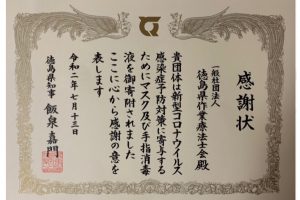 感謝状
一般社団法人
徳島県作業療法士会殿
貴団体は新型コロナウイルス
感染症予防対策に寄与する
ためにマスク及び手指消毒
液を御寄附されました
ここに心から感謝の意を
表します
令和二年七月十三日
徳島県知事 飯泉嘉門